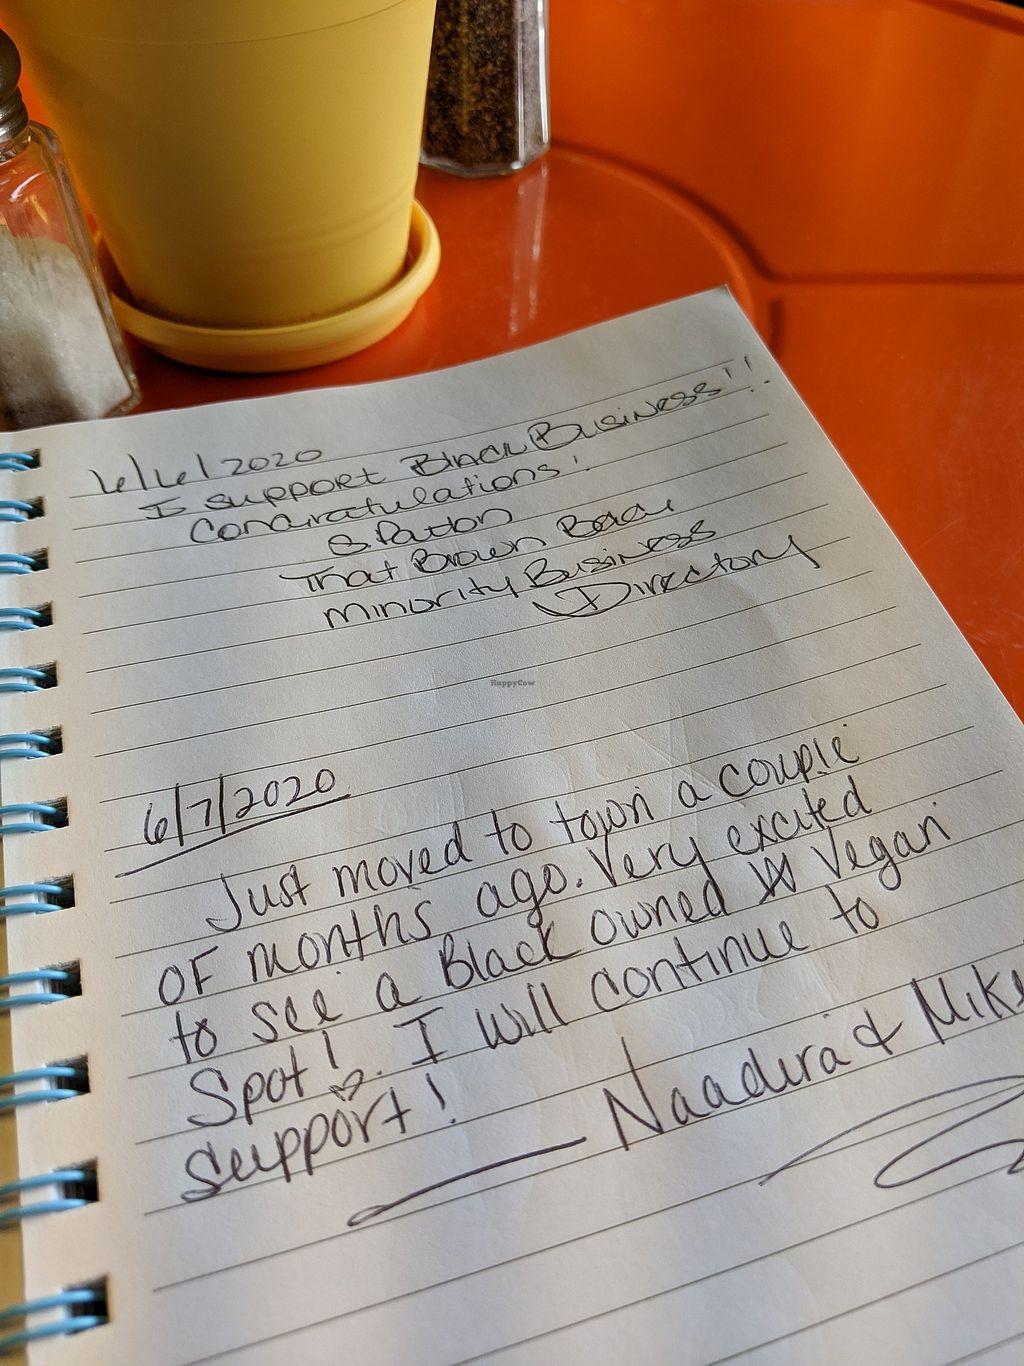 6/6/2020
I support Black Business!!
Congratulations!
S Patton
That Brown Bag
Minority Business
Directory
HappyCow
6/7/2020
Just moved to town a couple
of months ago. Very excited
to see a Black owned Vegan
Spot! I will continue to
support!
Naadira & Mike